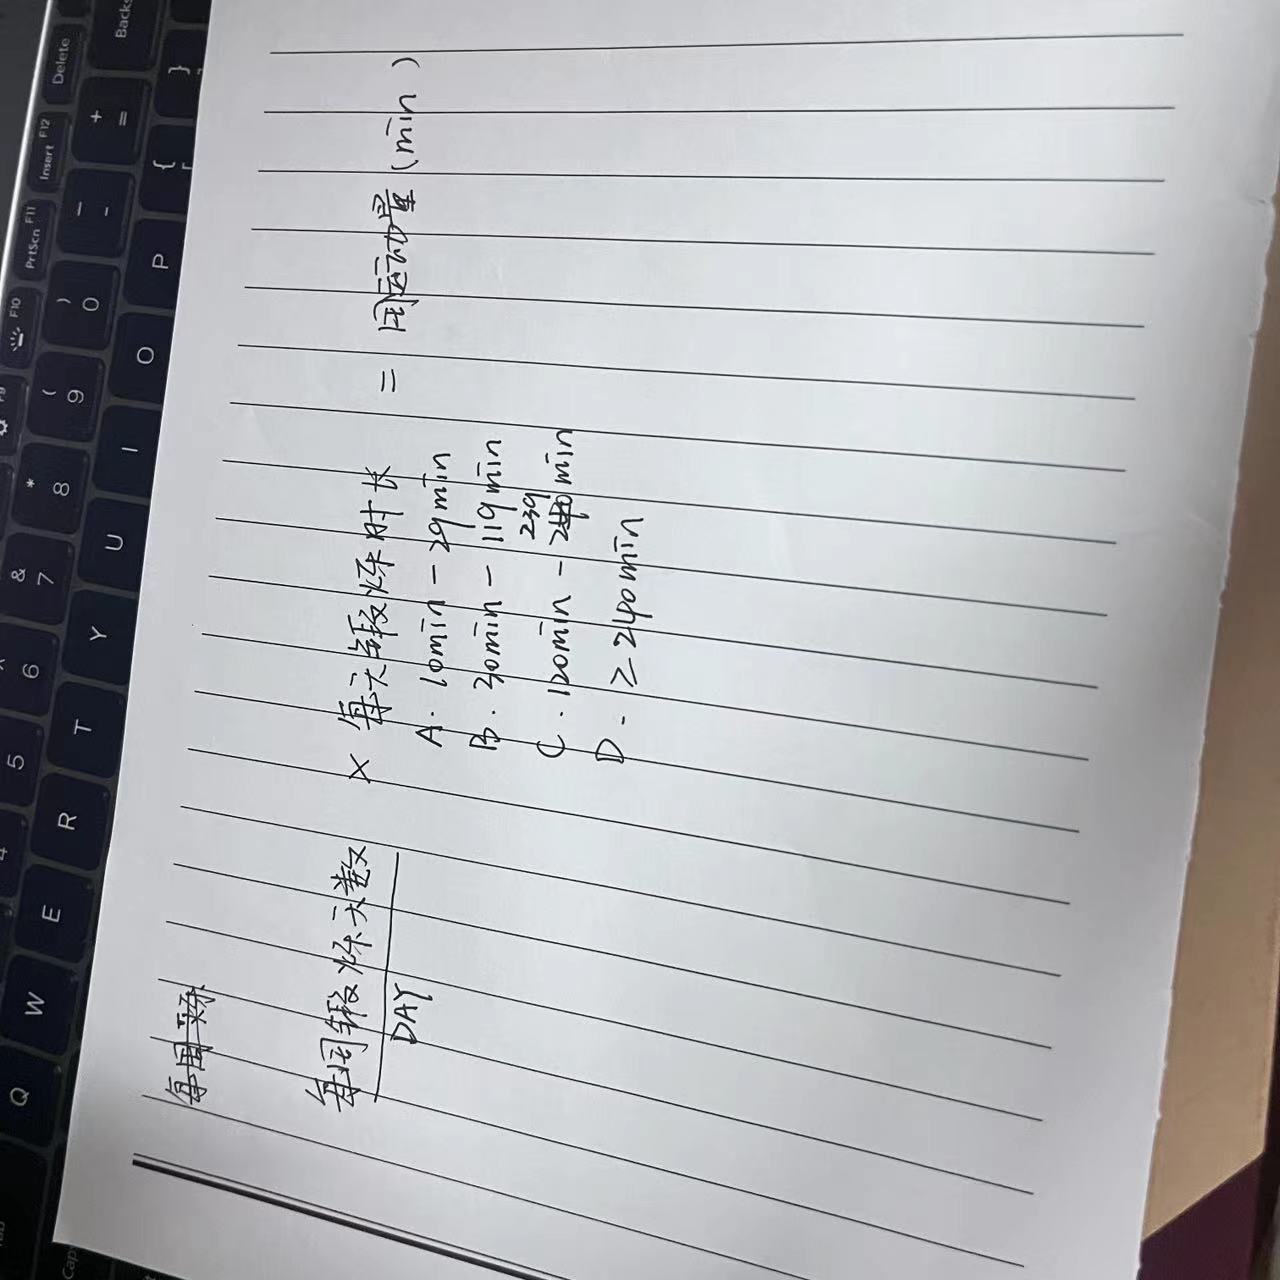 每周锻炼天数 × 每天锻炼时长 = 周运动量 (min)
DAY
A. 10min - 29min
B. 30min - 119min
C. 120min - 239min
D. ≥ 240min
Delete
Insert F12
PrtScn F11
F10
F9
Backs
+ =
_ -
) 0
( 9
* 8
& 7
6
5
4
} ]
{ [
P
O
I
U
Y
T
R
E
W
Q
Cap